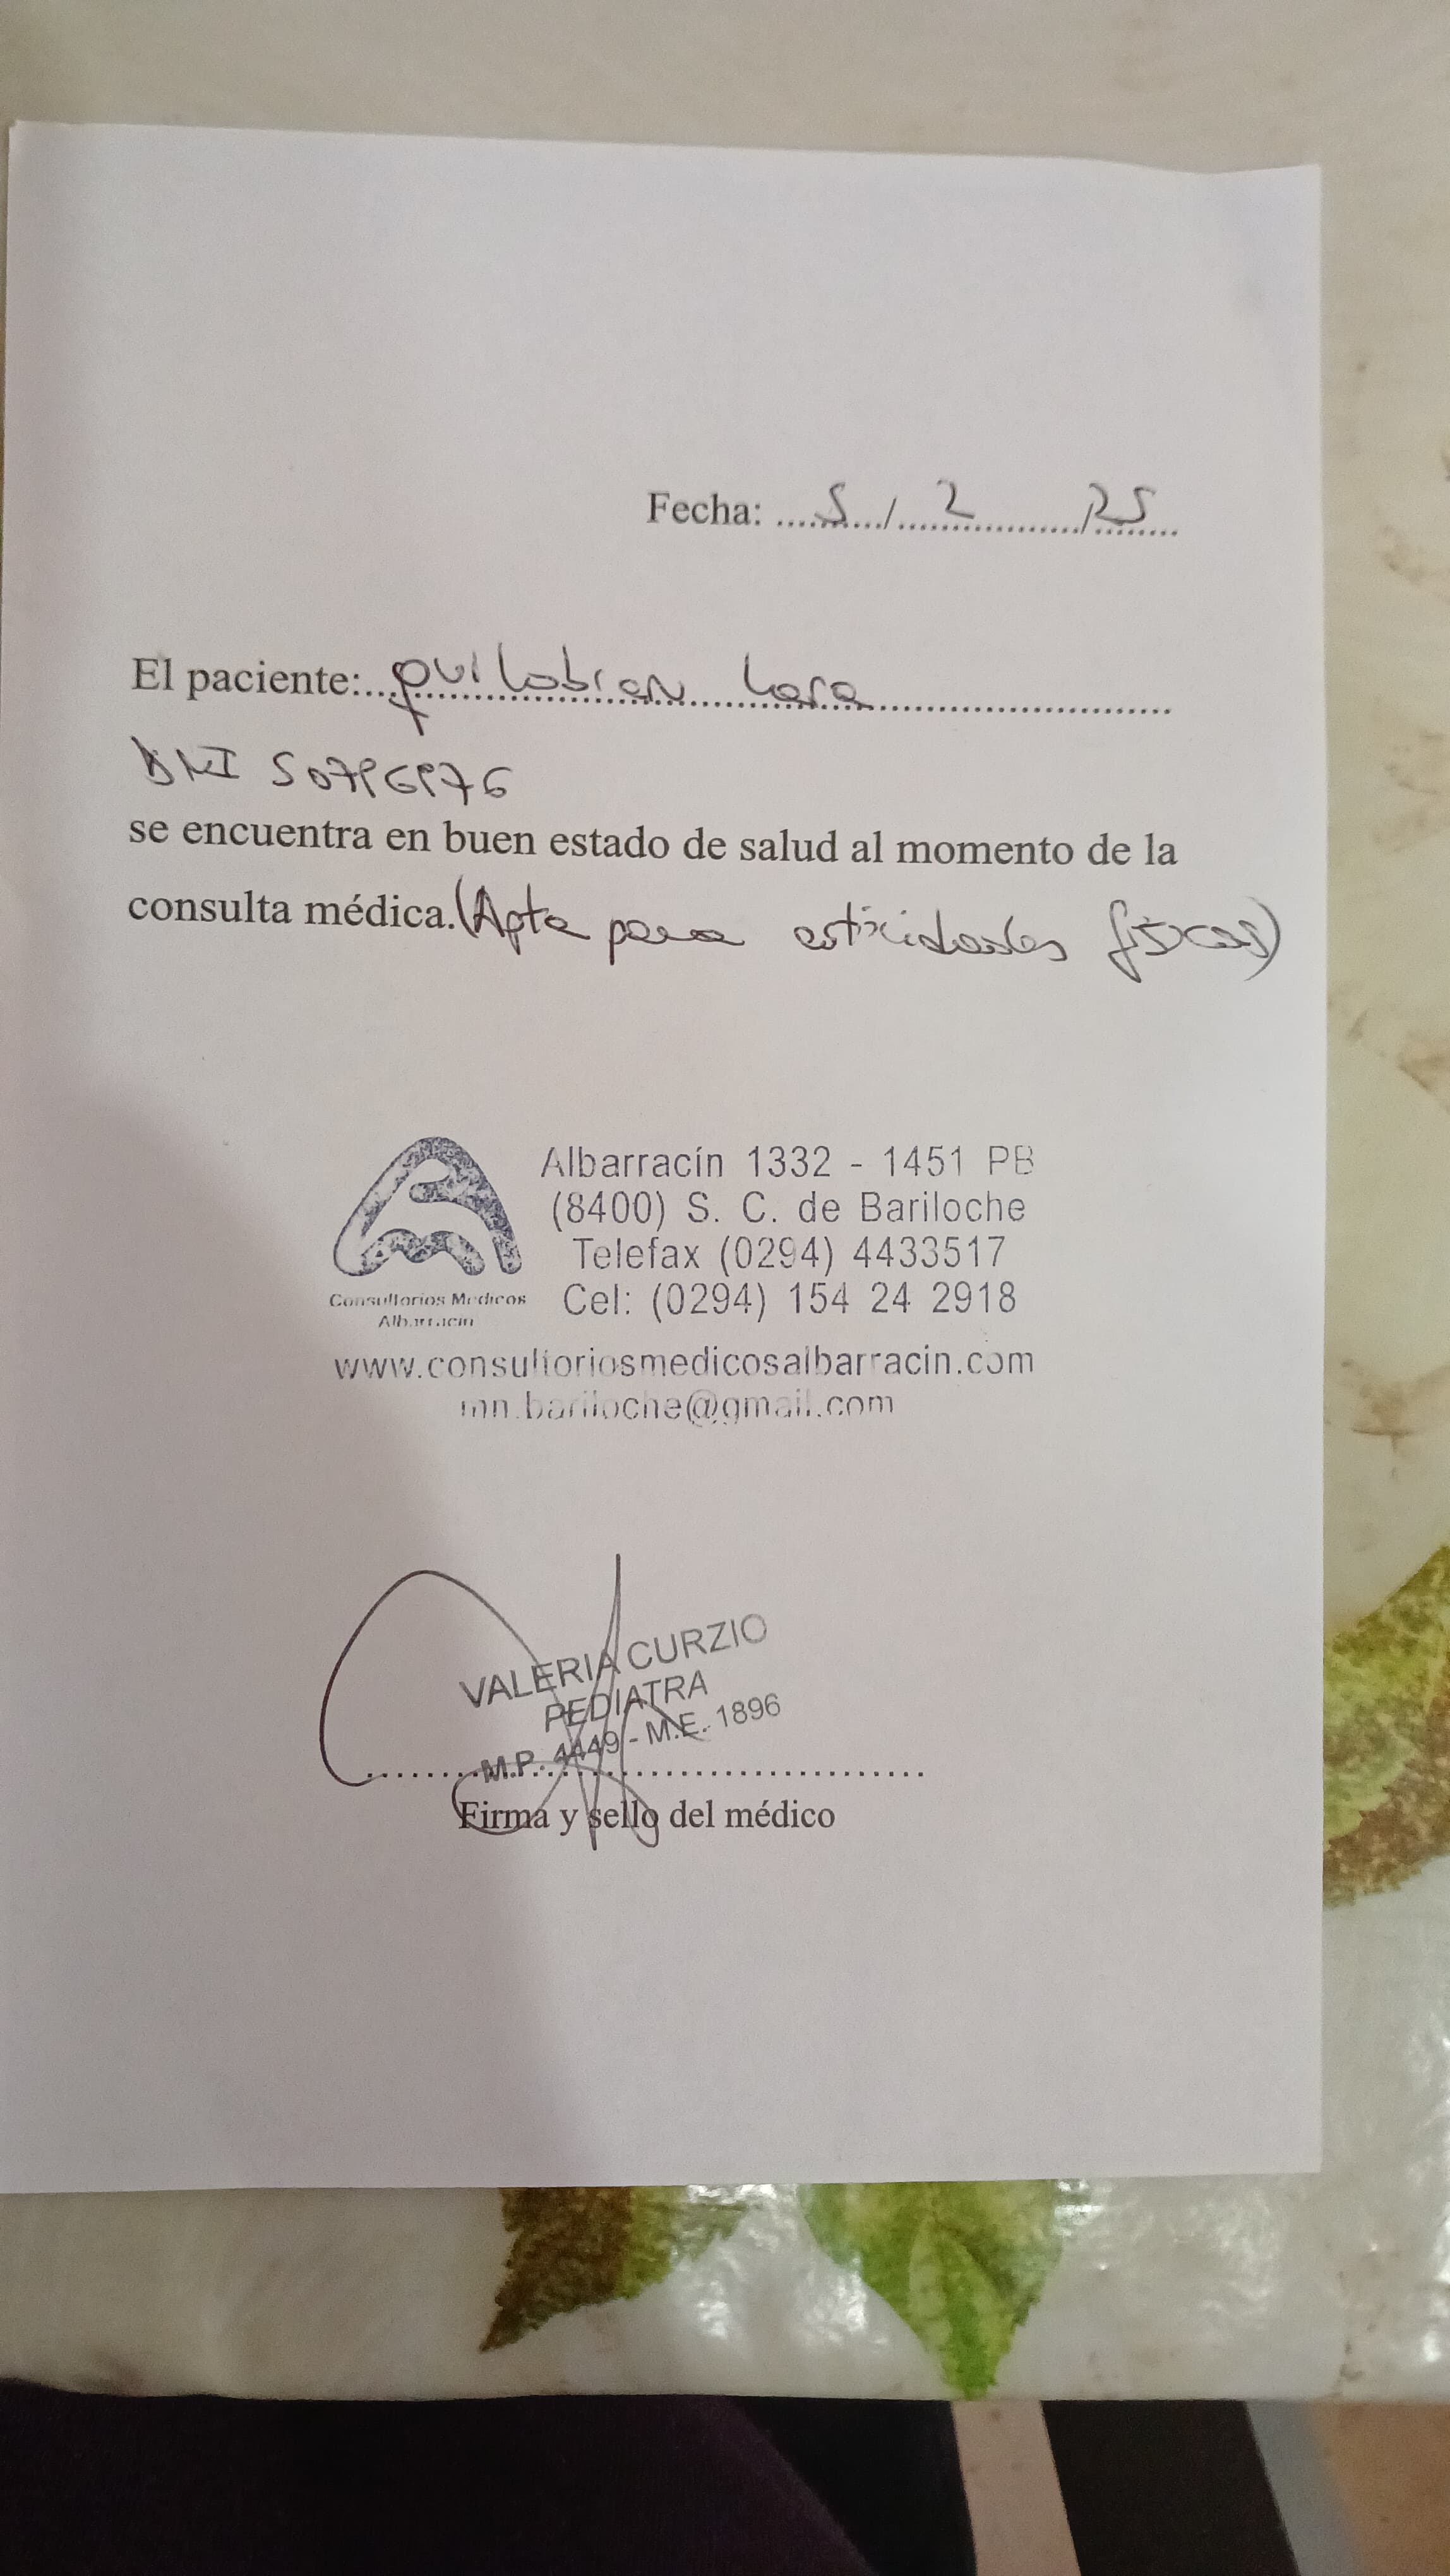 Fecha: 5 / 2 / 25
El paciente: Quilobran Lara
DNI 50796976
se encuentra en buen estado de salud al momento de la
consulta médica. (Apta para actividades físicas)
Albarracín 1332 - 1451 PB
(8400) S. C. de Bariloche
Telefax (0294) 4433517
Cel: (0294) 154 24 2918
Consultorios Medicos
Albarracin
www.consultoriosmedicosalbarracin.com
mn.bariloche@gmail.com
VALERIA CURZIO
PEDIATRA
M.P. 4449 - M.E. 1896
Firma y sello del médico